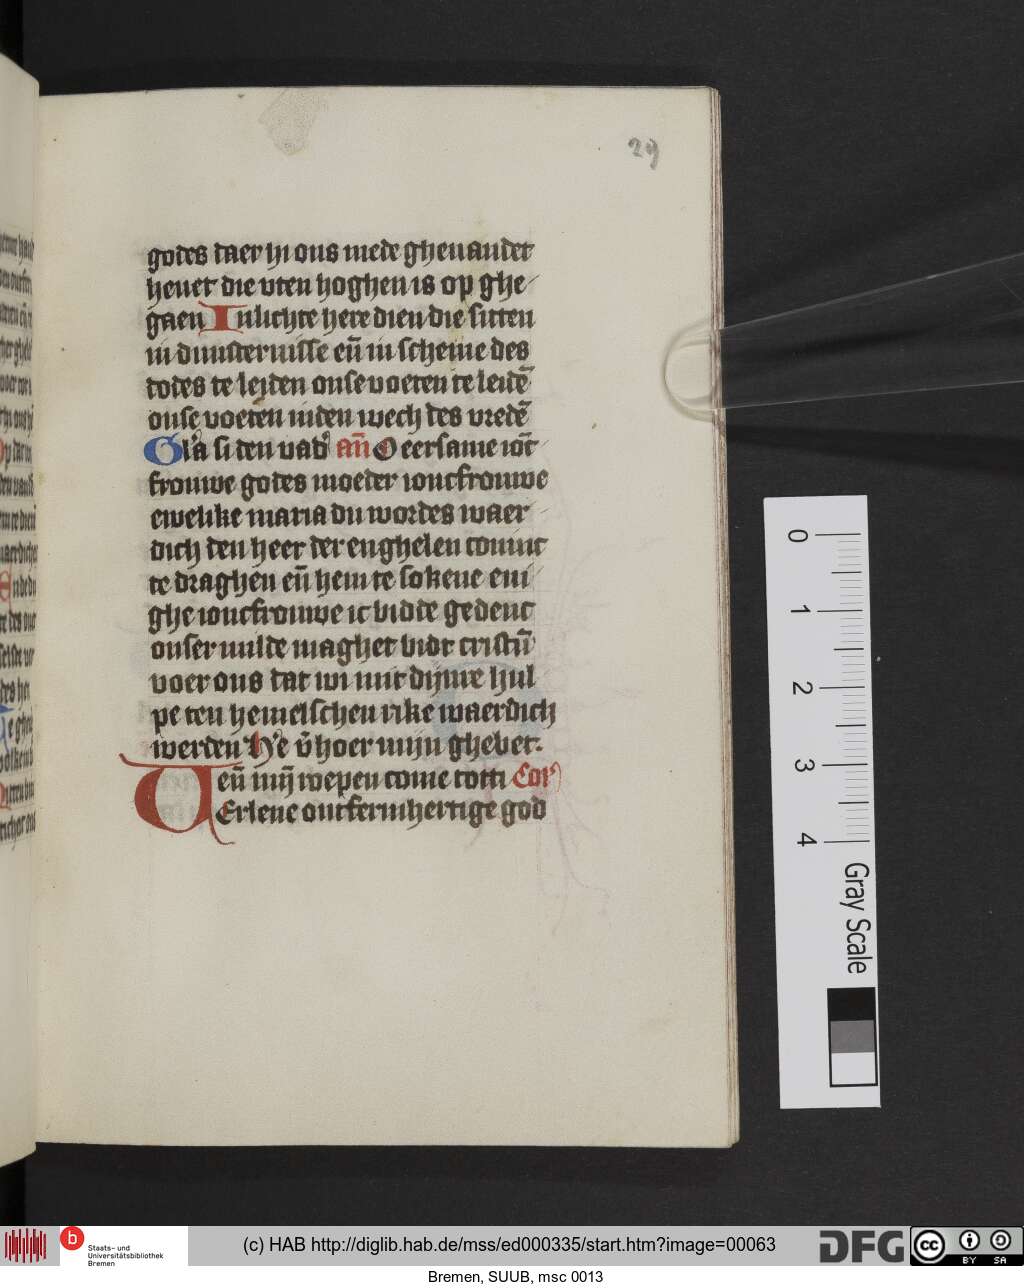 29
godes daer hi ons mede gheuandet
heuet die vten hoghen is op ghe
gaen Inlichte here dien die sitten
in dunsternisse eñ in scheme des
dodes te leiden onse voeten te leidē
onse voeten inden wech des vredē
Gl'a si den vad' añ O eersame ionc
frouwe godes moeder ioncfrouwe
ewelike maria du wordes waer
dich den heer der enghelen coninc
te draghen eñ hem te sokene ewi
ghe ioncfrouwe ic bidde gedenc
onser milde maghet bidt cristū
voer ons dat wi mit dijnre hul
pe den hemelschen rike waerdich
werden H'e v̄hoer mijn ghebet.
U eñ mij̄ roepen come totti Cor'
Erlene ontfermhertige god
0
1
2
3
4
Gray Scale
b
Staats- und
Universitätsbibliothek
Bremen
(c) HAB http://diglib.hab.de/mss/ed000335/start.htm?image=00063
DFG
cc
BY SA
Bremen, SUUB, msc 0013